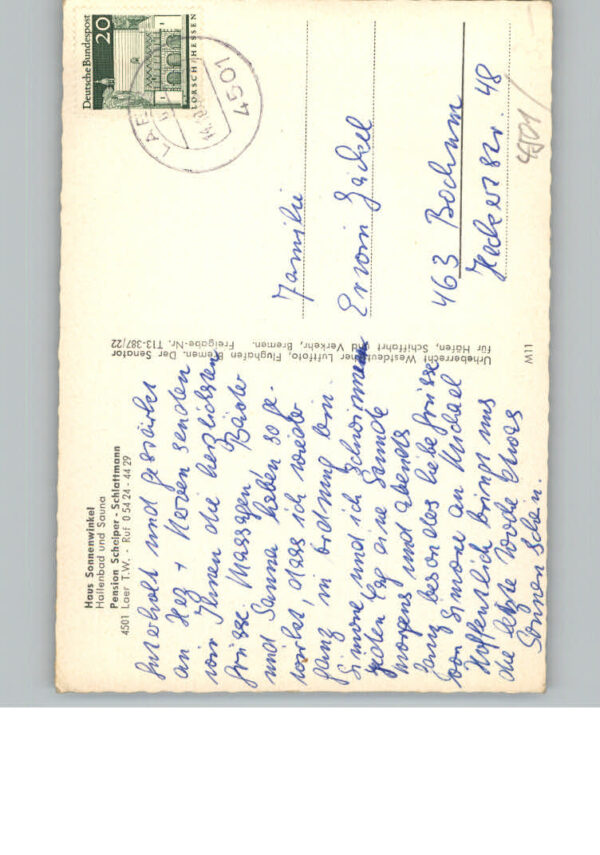 Haus Sonnenwinkel
Hallenbad und Sauna
Pension Scheiper - Schlattmann
4501 Laer T.W. - Ruf 0 54 24 - 44 29
Guterholt und gestärkt
an Herz + Nerven senden
wir Ihnen die herzlichsten
Grüsse. Massagen Bäder
und Sauna haben so ge-
wirkt, dass ich wieder
ganz in Ordnung bin.
Simone und ich schwimmen
jeden Tag eine Stunde
morgens und abends
ganz besonders liebe Grüsse
von Simone an Michael
Hoffentlich bringt uns
die letzte Woche etwas
Sonnenschein.
Urheberrecht Westdeutscher Luftfoto, Flughafen Bremen. Der Senator
für Häfen, Schiffahrt und Verkehr, Bremen. Freigabe-Nr. T13-387/22
M11
Deutsche Bundespost
20
LORSCH/HESSEN
LAER
4501
Familie
Erwin Jäckel
463 Bochum
Heckerstr. 48
4501/